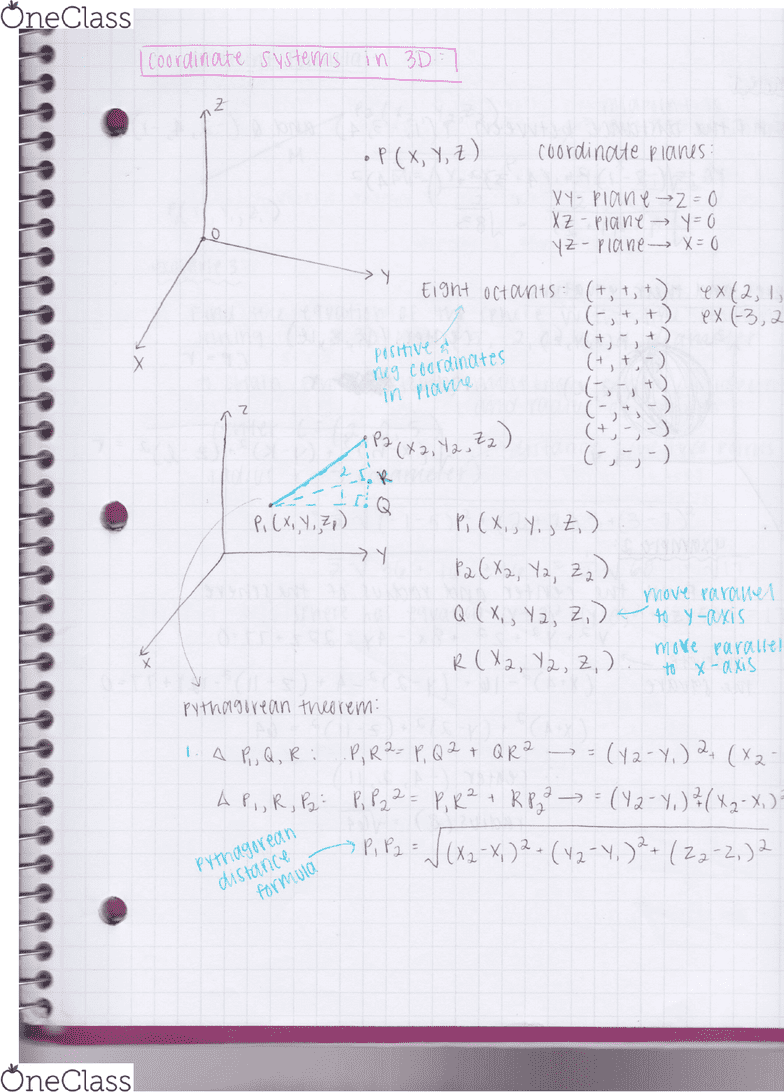 OneClass
coordinate systems in 3D:
Z
P(X,Y,Z)
O
Y
X
coordinate planes:
XY-plane → Z=0
XZ-plane → Y=0
YZ-plane → X=0
Eight octants: (+,+,+) ex(2,1,
(-,+,+) ex(-3,2
(+,-,+)
(+,+,-)
(-,-,+)
(-,+,-)
(+,-,-)
(-,-,-)
positive &
neg coordinates
in plane
Z
P2(X2,Y2,Z2)
2
R
1
Q
P1(X1,Y1,Z1)
Y
X
P1(X1,Y1,Z1)
P2(X2,Y2,Z2)
Q(X1,Y2,Z1) ← move parallel
to y-axis
R(X2,Y2,Z1). move parallel
to x-axis
Pythagorean theorem:
1. △ P1,Q,R: P1R² = P1Q² + QR² → = (Y2-Y1)² + (X2-
△ P1,R,P2: P1P2² = P1R² + RP2² → = (Y2-Y1)²+(X2-X1)²
Pythagorean
distance
formula
→ P1P2 = √(X2-X1)² + (Y2-Y1)² + (Z2-Z1)²
OneClass